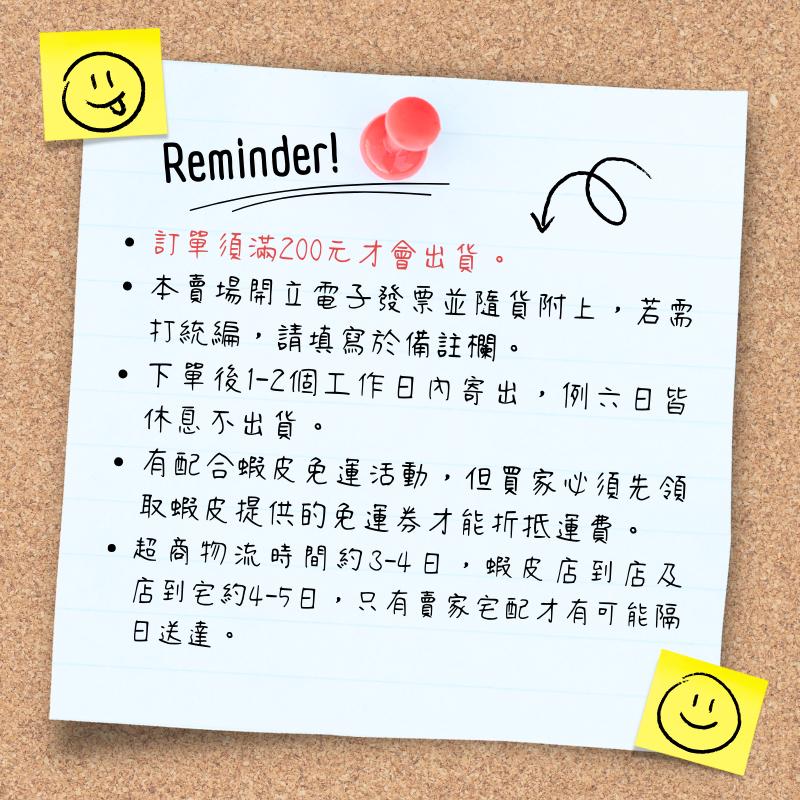 Reminder!
• 訂單須滿200元才會出貨。
• 本賣場開立電子發票並隨貨附上，若需
打統編，請填寫於備註欄。
• 下單後1-2個工作日內寄出，例六日皆
休息不出貨。
• 有配合蝦皮免運活動，但買家必須先領
取蝦皮提供的免運券才能折抵運費。
• 超商物流時間約3-4日，蝦皮店到店及
店到宅約4-5日，只有賣家宅配才有可能隔
日送達。